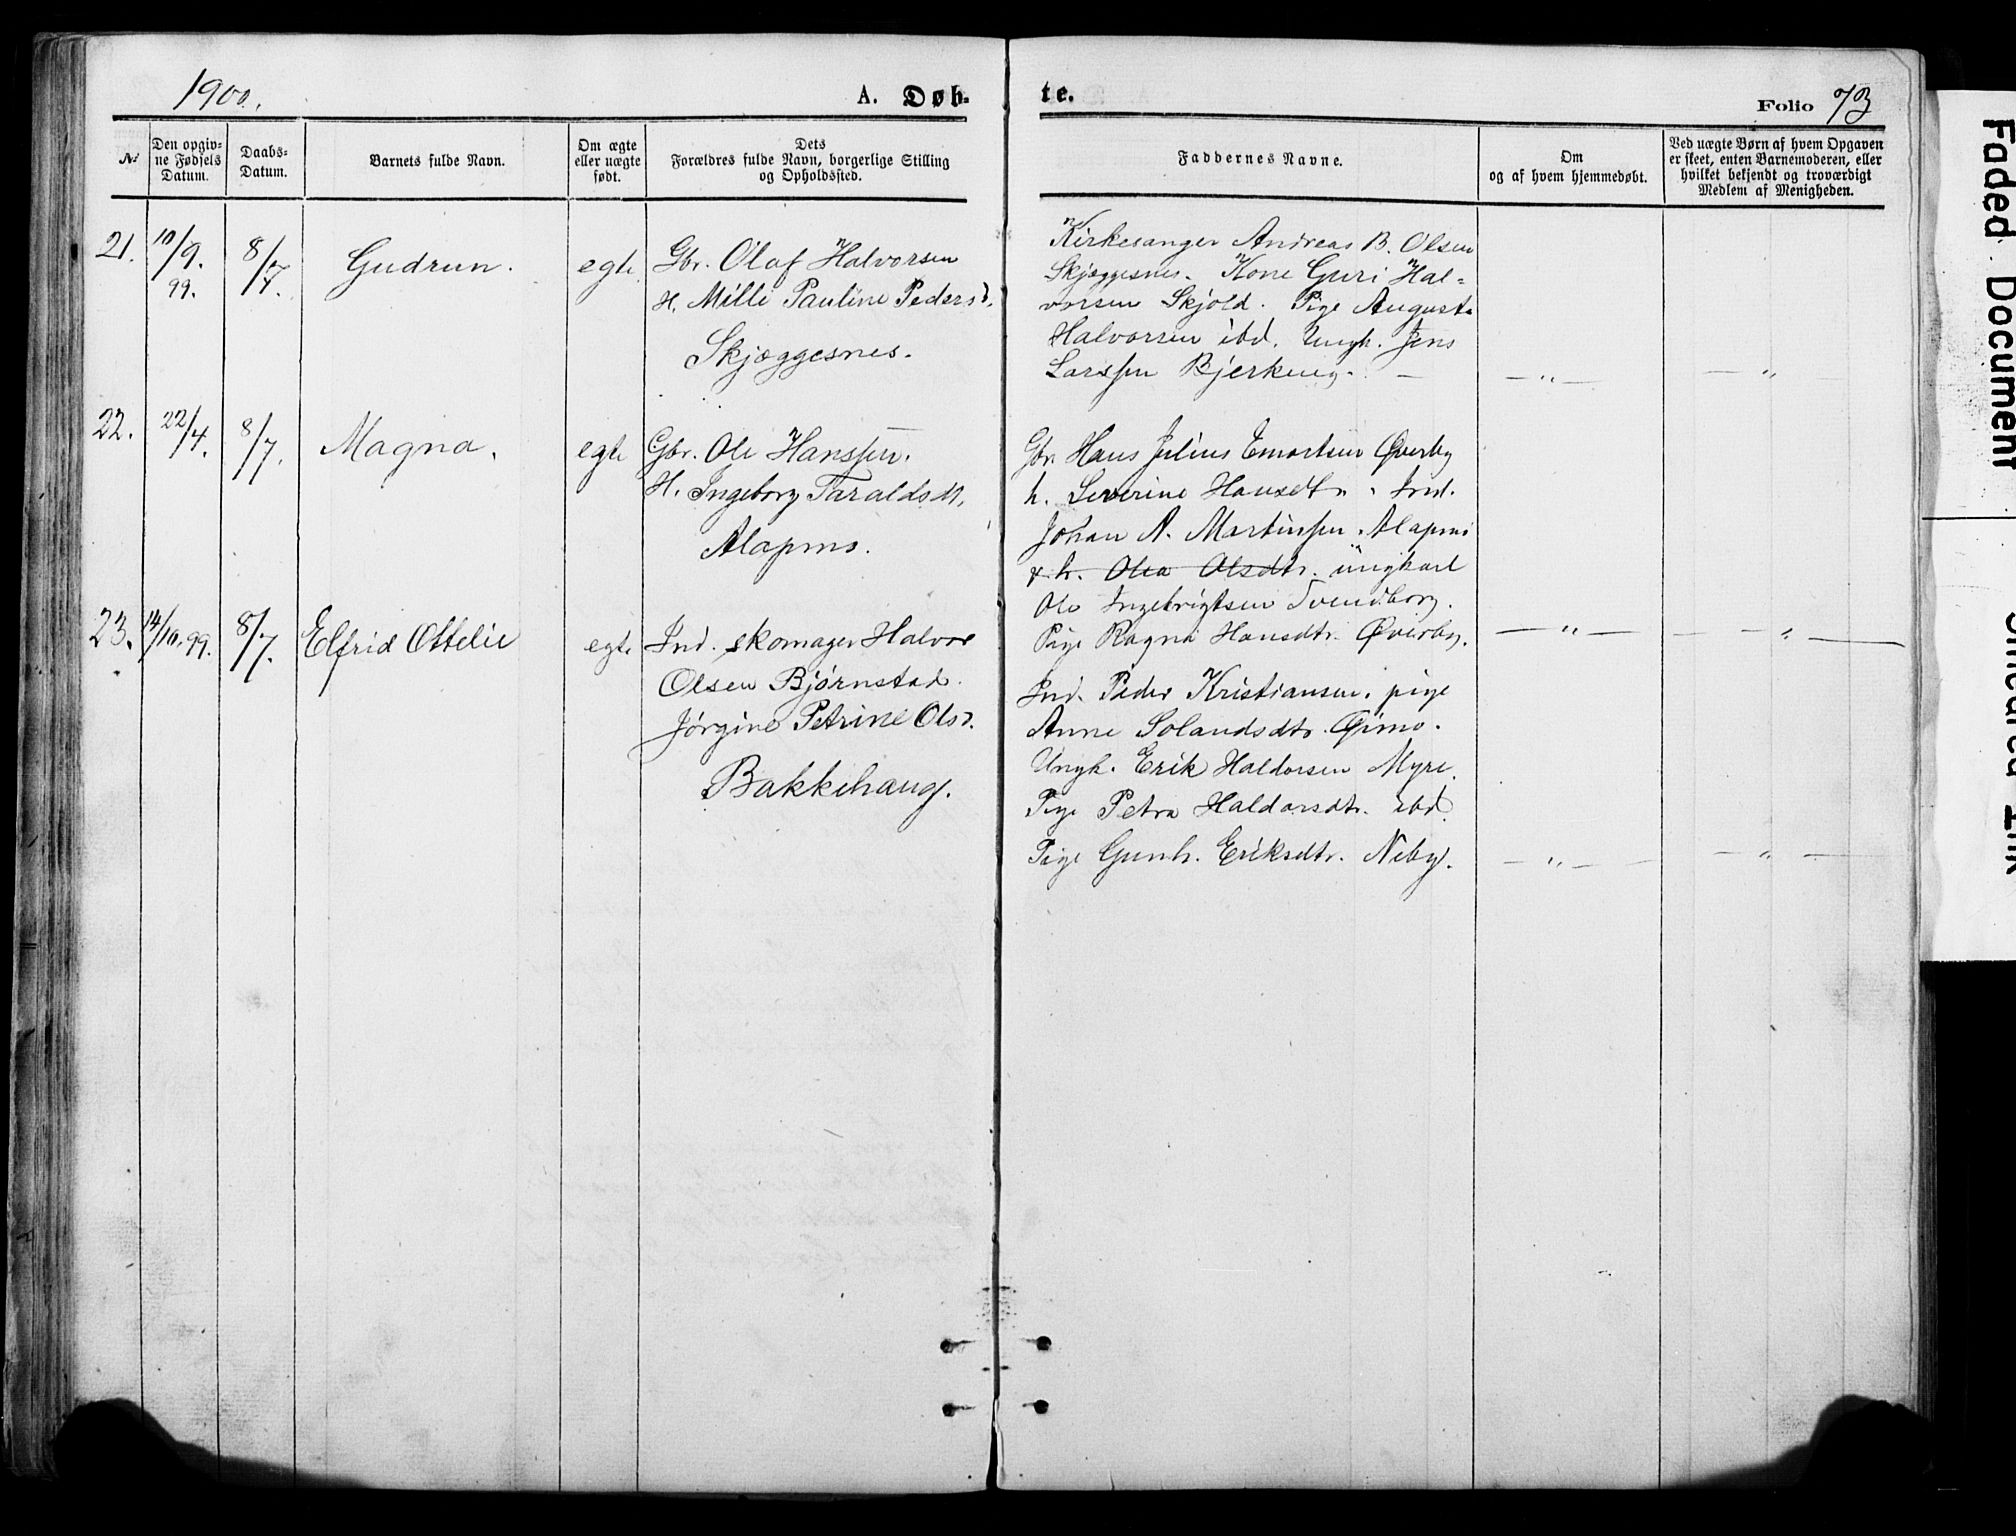 1900.
A. Døb-
te.
Folio 73
№
Den opgiv-
ne Fødsels
Datum.
Daabs-
Datum.
Barnets fulde Navn.
Om ægte
eller uægte
født.
Dets
Forældres fulde Navn, borgerlige Stilling
og Opholdssted.
Faddernes Navne.
Om
og af hvem hjemmedøbt.
Ved uægte Børn af hvem Opgaven
er skeet, enten Barnemoderen, eller
hvilket bekjendt og troværdigt
Medlem af Menigheden.
21.
10/9.
99.
8/7.
Gudrun.
egte
Gbr. Olaf Halvorsen
H. Milli Pauline Pedersd.
Skjæggesnes.
Kirkesanger Andreas B. Olsen
Skjæggesnes. Kone Guri Hal-
vorsen Skjold. Pige Augusta
Halvorsen ibd. Ungk. Jens
Larssen Bjerkeng.
— „ —
— „
22.
22/4.
8/7.
Magna.
egte
Gbr. Ole Hanssen.
H. Ingeborg Taraldsdt.
Alapmo.
Gbr. Hans Julius Emortsen Øverby
h. Severine Hansdtr. Ind.
Johan A. Martinssen. Alapmo
& h. Olea Olsdtr. ungkarl
Ole Ingebrigtsen Svendborg.
Pige Ragna Hansdtr. Øverby.
— „ —
— „ —
23.
14/10.99.
8/7.
Elfrid Ottelie
egte
Ind. skomager Halvor
Olsen Bjørnstad.
Jørgine Petrine Olsd.
Bakkehaug.
Ind. Peder Kristiansen. pige
Anne Solandsdtr. Gimo.
Ungk. Erik Haldorsen Myre.
Pige Petra Haldorsdtr. ibd.
Pige Gunh. Eriksdtr. Neby.
— „ —
— „ —
Faded Document